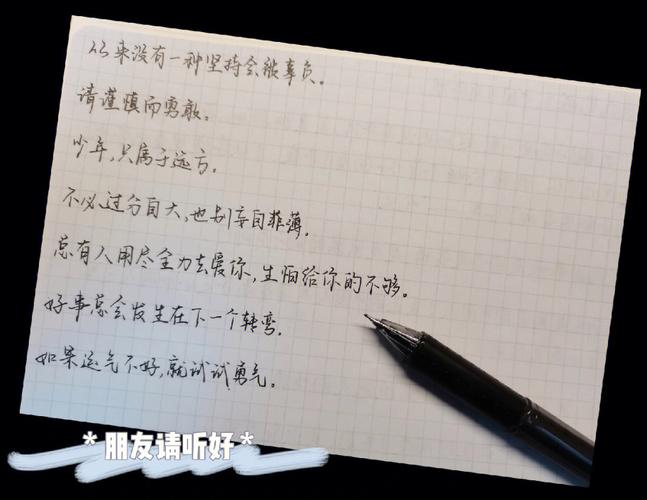 从来没有一种坚持会被辜负。
请谨慎而勇敢。
少年,只属于远方。
不必过分自大,也别妄自菲薄。
总有人用尽全力去爱你,生怕给你的不够。
好事总会发生在下一个转弯。
如果运气不好,就试试勇气。
*朋友请听好*